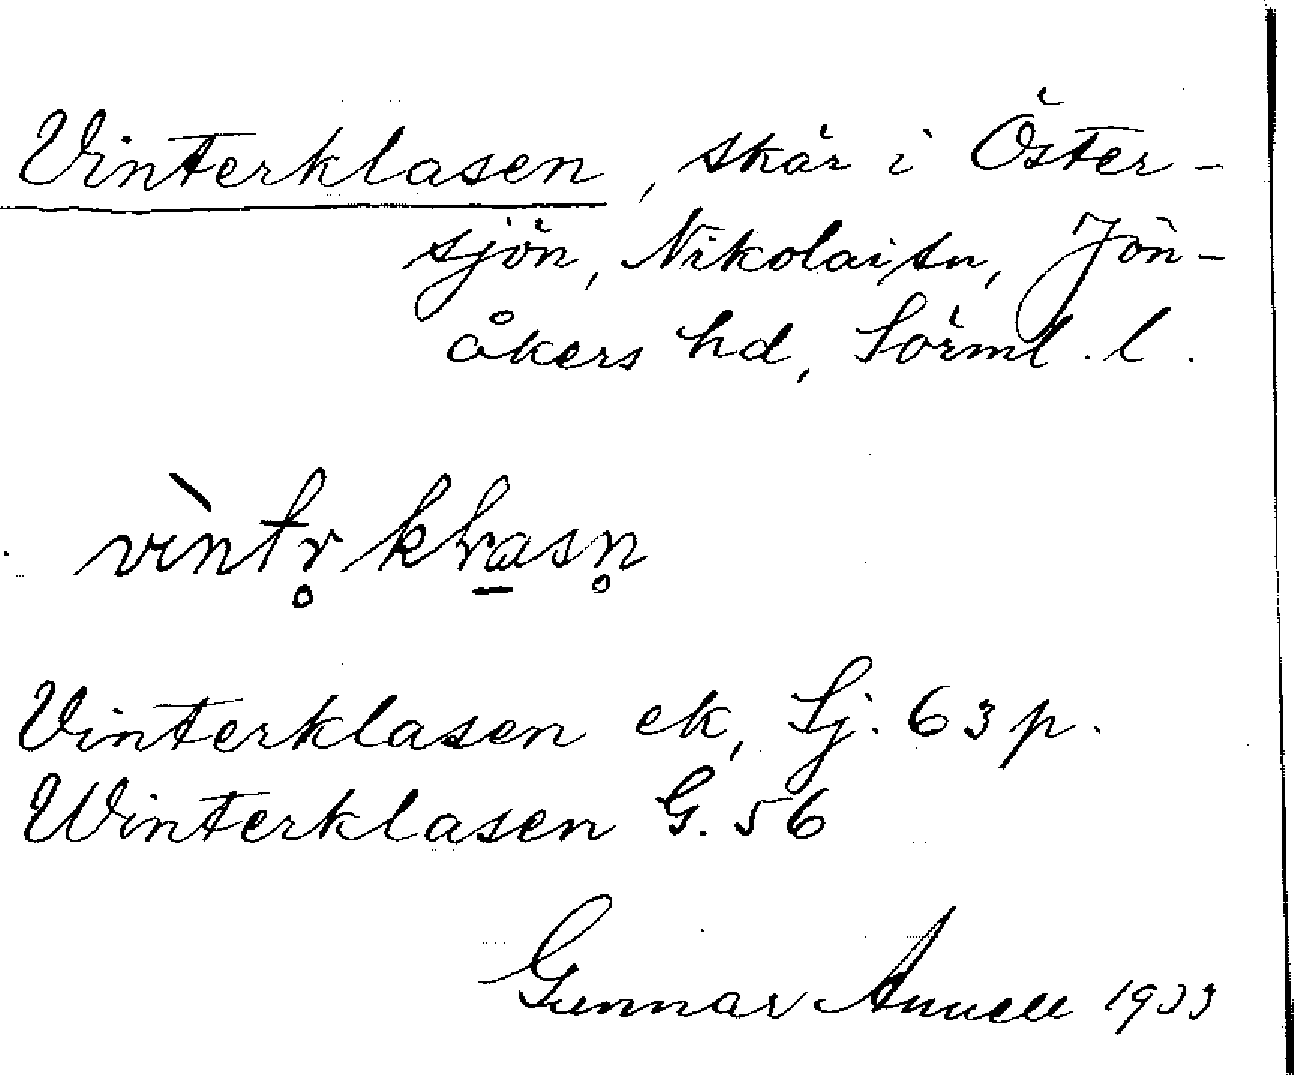 Vinterklasen, skär i Öster-
sjön, Nikolai sn, Jön-
åkers hd, Sörml. l.
vìntr̥ kɫa̠sn̥
Vinterklasen ek, Sj. 63 p.
Winterklasen G. 56
Gunnar Annell 1933